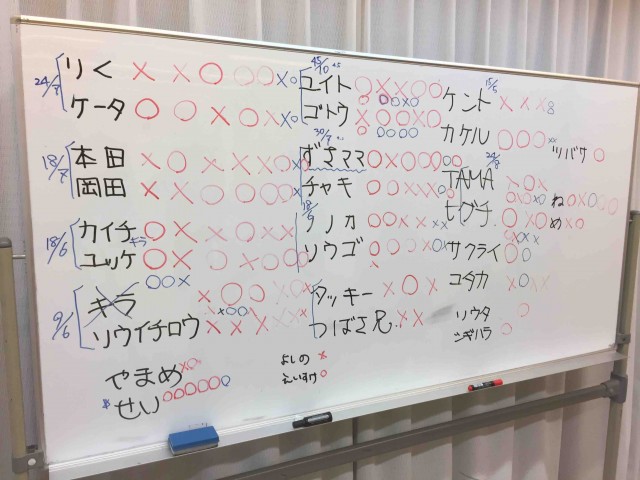 24/7
りく × × ○ ○ ○ × ○
ケータ ○ ○ × ○ × ○
18/7
本田 × ○ × × × ○
岡田 × × ○ × × ×
18/6
カイチ ○ × ○ × ×
キラ
ユッケ ○ × ○ ○ ○
○ ○ ×
9/6
キラ × ○ ○ ×
× × ○ ○
ソウイチロウ × × × ×
やまめ × ○
せい ○ ○ ○ ○ ○ ○
45/10
ユイト ○ × × ○ ○
○ ○ × ○
ゴトウ × ○ ○ ○ ×
○ ○ ○ ○
30/7
ずさママ ○ × ○ × ○ ○ ○
チャキ × ○ × × ○ ○
18/9
ノノカ ○ ○ × × × ×
ソウゴ ○ ○ × × ○ ○
タッキー × ○ × ○
つばさ兄 × ×
よしの ×
えいすけ ○
15/6
ケント × × × 8
カケル ○ ○ ○
ツバサ ○
24/8
TAMA × ○ ×
ヒグチ ○ × ○ ×
ね ○ × ○ ○ ○
め × ○
サクライ ○ ○
コタカ × ○ ×
ソウタ ○
シギハラ ○